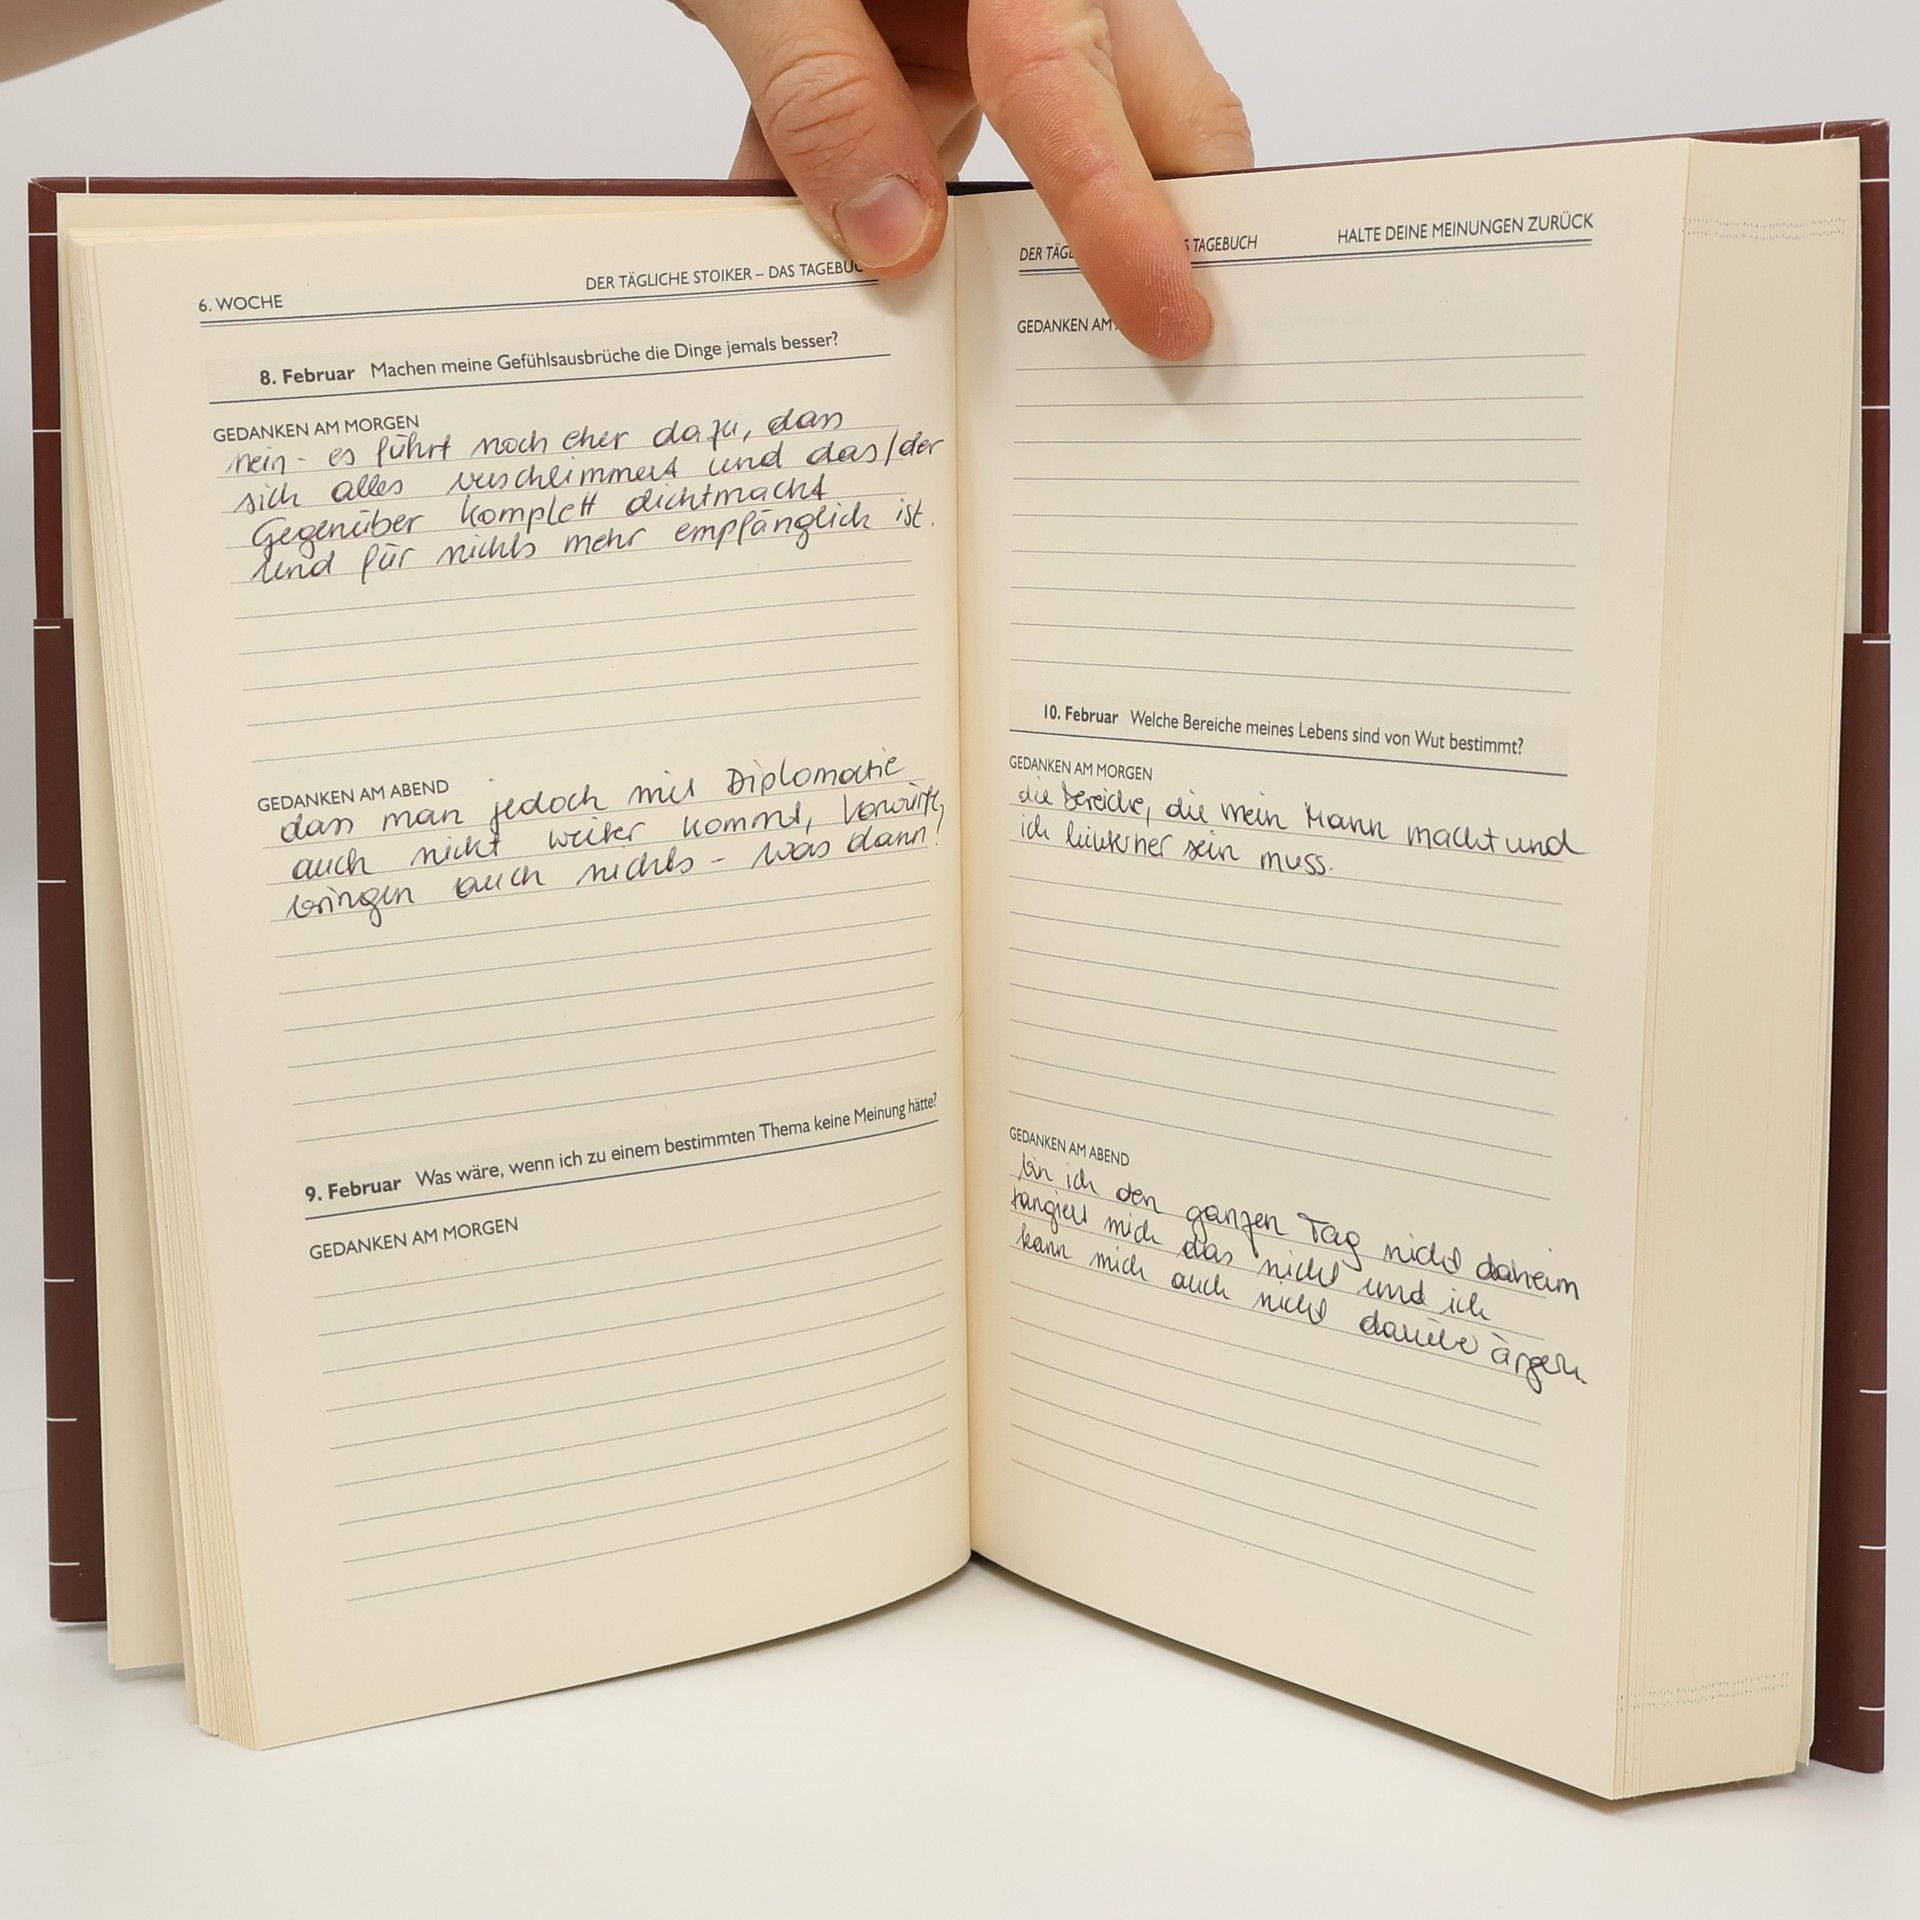 6. WOCHE DER TÄGLICHE STOIKER – DAS TAGEBUC
8. Februar Machen meine Gefühlsausbrüche die Dinge jemals besser?
GEDANKEN AM MORGEN
Nein - es führt noch eher dazu, dass
sich alles verschlimmert und das/der
Gegenüber komplett dichtmacht
und für nichts mehr empfänglich ist.
GEDANKEN AM ABEND
dass man jedoch mit Diplomatie
auch nicht weiter kommt, Vorwürfe,
bringen auch nichts - was dann?
9. Februar Was wäre, wenn ich zu einem bestimmten Thema keine Meinung hätte?
GEDANKEN AM MORGEN
DER TÄG S TAGEBUCH HALTE DEINE MEINUNGEN ZURÜCK
GEDANKEN AM
10. Februar Welche Bereiche meines Lebens sind von Wut bestimmt?
GEDANKEN AM MORGEN
die Bereiche, die mein Mann macht und
ich sein muss.
GEDANKEN AM ABEND
bin ich den ganzen Tag nicht daheim
tangiert mich das nicht und ich
kann mich auch nicht darüber ärgern